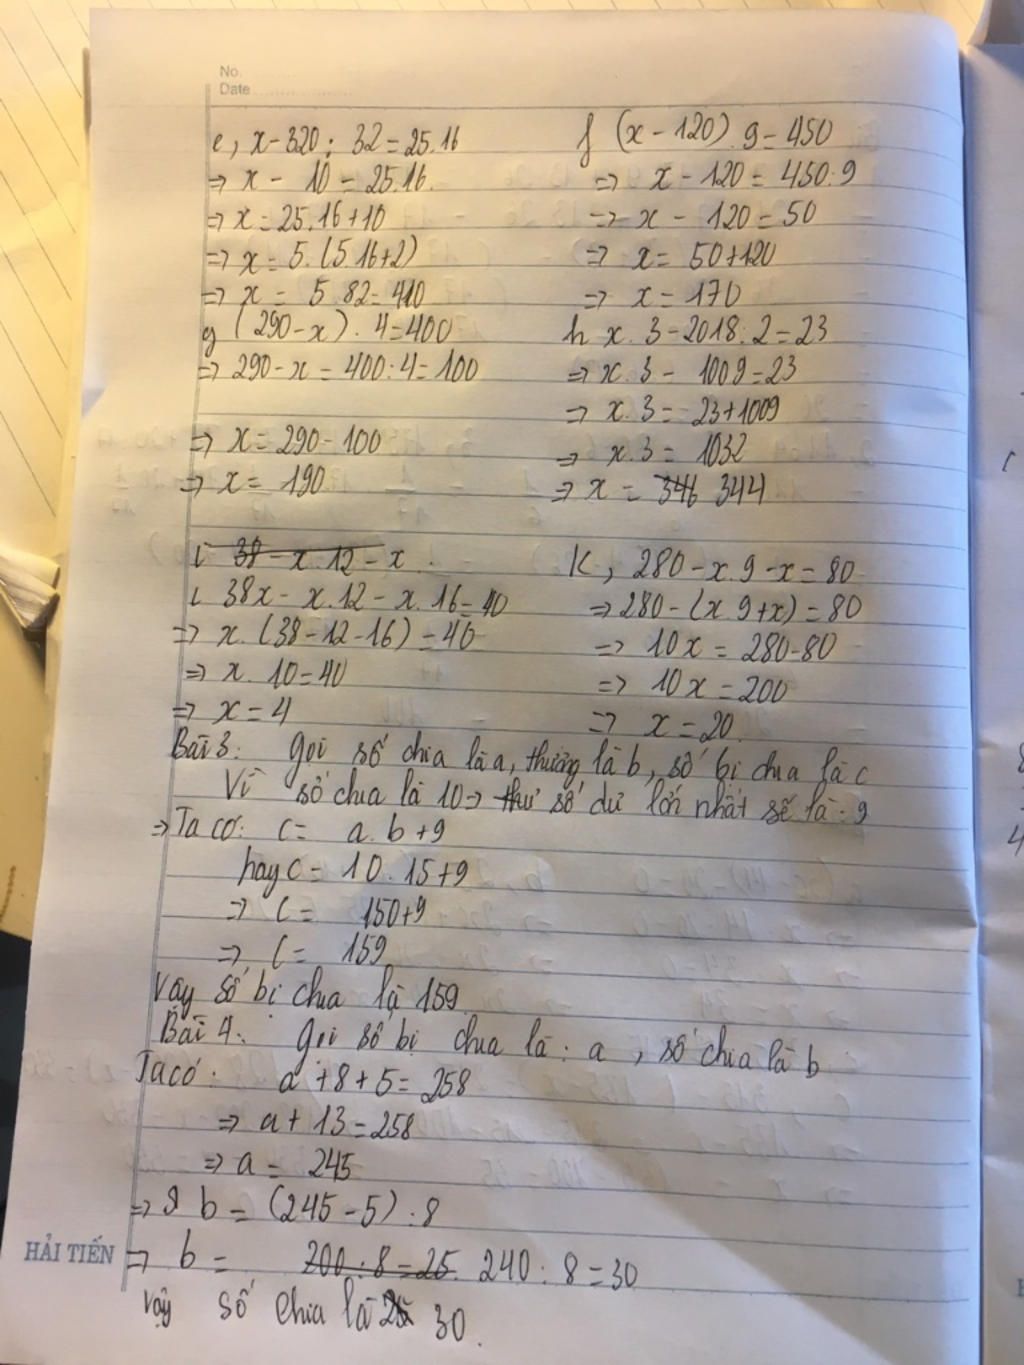 No.
Date
e, x - 320 : 32 = 25.16
=> x - 10 = 25.16.
=> x = 25.16 + 10
=> x = 5.(5.16+2)
=> x = 5.82 = 410
f (x - 120).9 = 450
=> x - 120 = 450:9
=> x - 120 = 50
=> x = 50 + 120
=> x = 170
g (290 - x).4 = 400
=> 290 - x = 400:4 = 100
=> x = 290 - 100
=> x = 190
h x.3 - 2018:2 = 23
=> x.3 - 1009 = 23
=> x.3 = 23 + 1009
=> x.3 = 1032
=> x = 346 344
i 38 - x.12 - x
i 38x - x.12 - x.16 = 40
=> x.(38 - 12 - 16) = 40
=> x.10 = 40
=> x = 4
K, 280 - x.9 - x = 80
=> 280 - (x.9 + x) = 80
=> 10x = 280 - 80
=> 10x = 200
=> x = 20.
Bài 3: gọi số chia là a, thương là b, số bị chia là c
Vì số chia là 10 => thư số dư lớn nhất sẽ là: 9
=> Ta có: c = a.b + 9
hay c = 10.15 + 9
=> c = 150 + 9
=> c = 159
Vậy số bị chia là 159
Bài 4: gọi số bị chia là: a, số chia là b
Ta có: a + 8 + 5 = 258
=> a + 13 = 258
=> a = 245
=> 8 b = (245 - 5):8
=> b = 200:8 = 25. 240:8 = 30
Vậy số chia là 25 30.
HẢI TIẾN